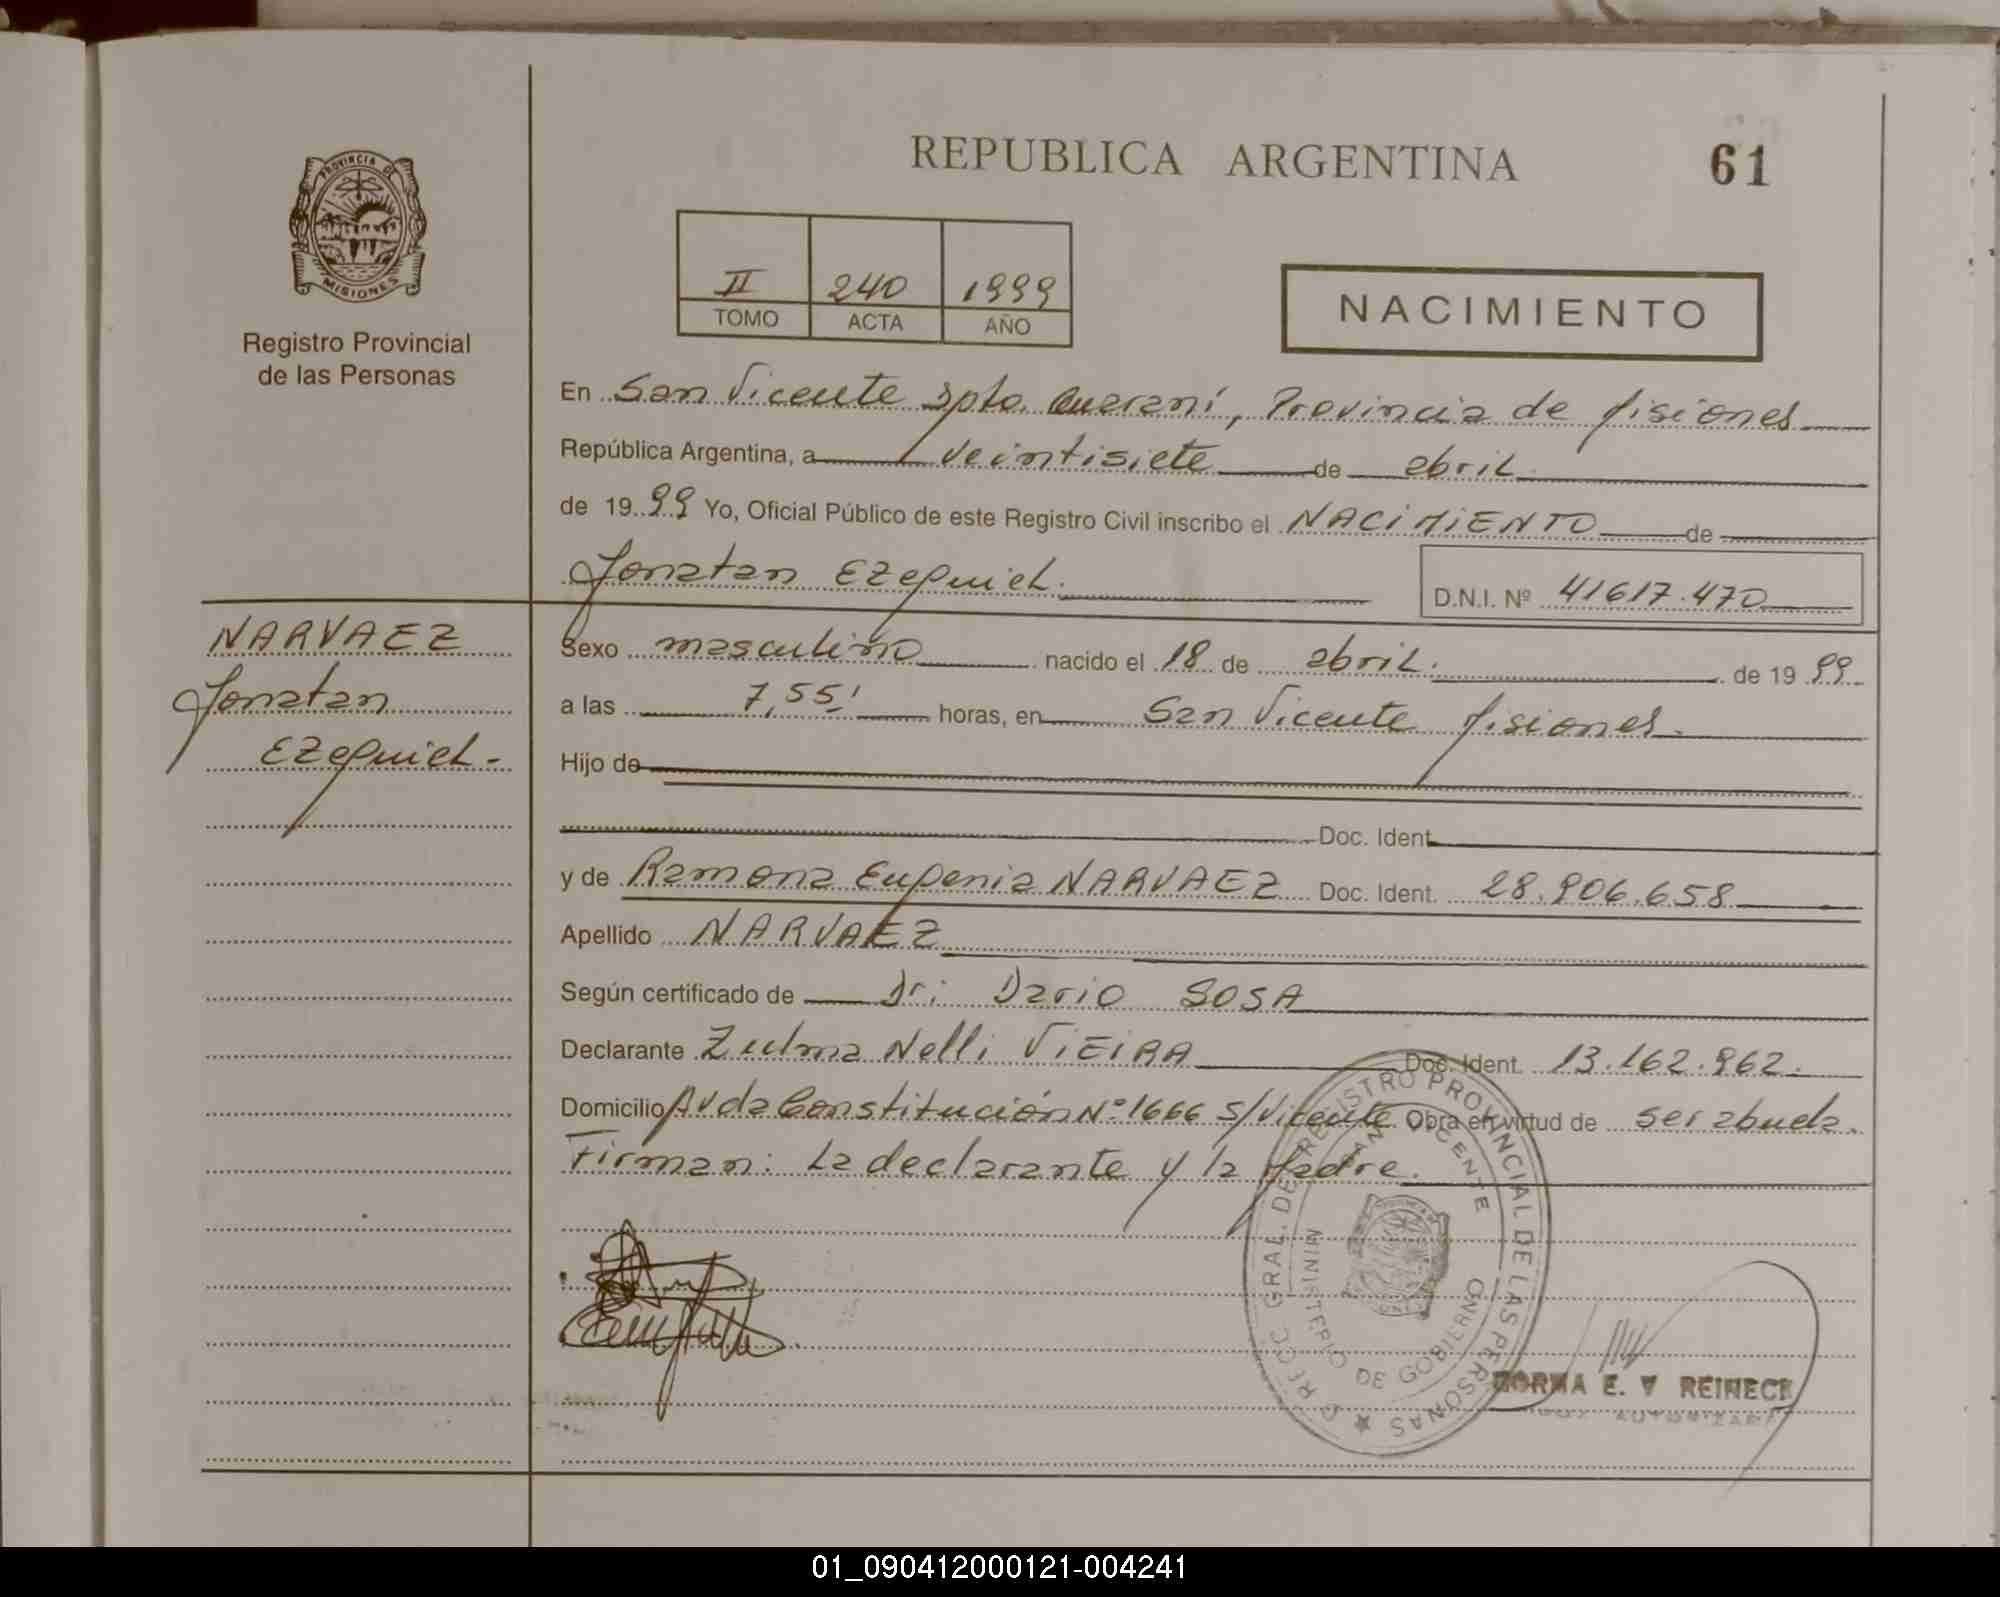 REPUBLICA ARGENTINA
61
PROVINCIA DE
MISIONES
Registro Provincial
de las Personas
II 240 1999
TOMO ACTA AÑO
NACIMIENTO
En San Vicente Dpto. Guaraní, Provincia de Misiones
República Argentina, a veintisiete de abril
de 1999 Yo, Oficial Público de este Registro Civil inscribo el NACIMIENTO de
Jonatan Ezequiel.
D.N.I. Nº 41617.470
NARVAEZ
Jonatan
Ezequiel-
Sexo masculino nacido el 18 de abril. de 1999.
a las 7,55' horas, en San Vicente Misiones.
Hijo de
Doc. Ident.
y de Ramona Eugenia NARVAEZ Doc. Ident. 28.906.658
Apellido NARVAEZ
Según certificado de Dr: Dario SOSA
Declarante Zulma Nelli VIEIRA Doc. Ident. 13.162.962.
Domicilio Avda Constitución Nº 1666 S/Vicente Obra en virtud de ser abuela.
Firman: La declarante y la Madre.
G RECC GRAL. DE REGISTRO PROVINCIAL DE LAS PERSONAS
SAN VICENTE
MINISTERIO DE GOBIERNO
NORMA E. V REINECK
01_090412000121-004241